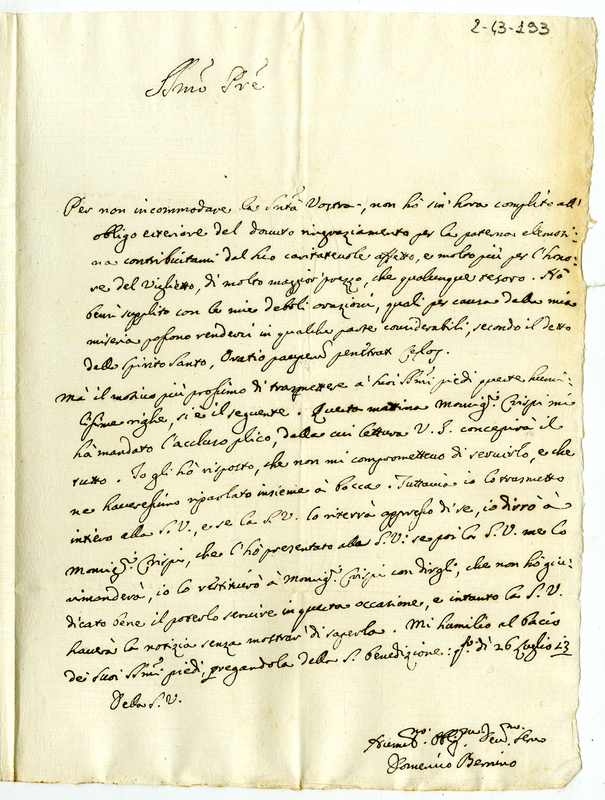 2-43-193
SSmo Pre
Per non incommodare la Sntà Vostra, non hò sin' hora complito all'
obligo esteriore del dovuto ringraziamento per la paterna elemosi:
na contribuitami dal suo caritatevole affetto, e molto più per l'hono:
re del Viglietto, di molto maggior prezzo, che qualunque tesoro. Hò
bensì supplito con le mie deboli orazioni, quali per causa della mia
miseria possono rendersi in qualche parte considerabili, secondo il detto
dello Spirito Santo, Oratio pauperis penetrat Celos.
Mà il motivo più prossimo di trasmettere à suoi SSmi piedi queste humi:
lissime righe, si è il seguente. Questa mattina Monsigr. Crispi mi
hà mandato l'accluso plico, dalla cui lettura V. S. concepirà il
tutto. Io gli hò risposto, che non mi compromettevo di servirlo, e che
ne haveressimo riparlato insieme à bocca. Tuttavia io lo trasmetto
intiero alla S. V., e se la S. V. lo riterrà appresso di se, io dirrò à
Monsigr. Crispi, che l'hò presentato alla S. V.: se poi la S. V. me lo
rimanderà, io lo restituirò à Monsigr. Crispi con dirgli, che non hò giu:
dicato bene il poterlo servire in questa occasione, e intanto la S. V.
haverà la notizia senza mostrar di saperla. Mi humilio al bacio
dei suoi SSmi piedi, pregandola della S. benedizione: qsto dì 26 Luglio 13
Della S. V.
Humilmo. Obligmo. Devmo. Servo
Domenico Bernino